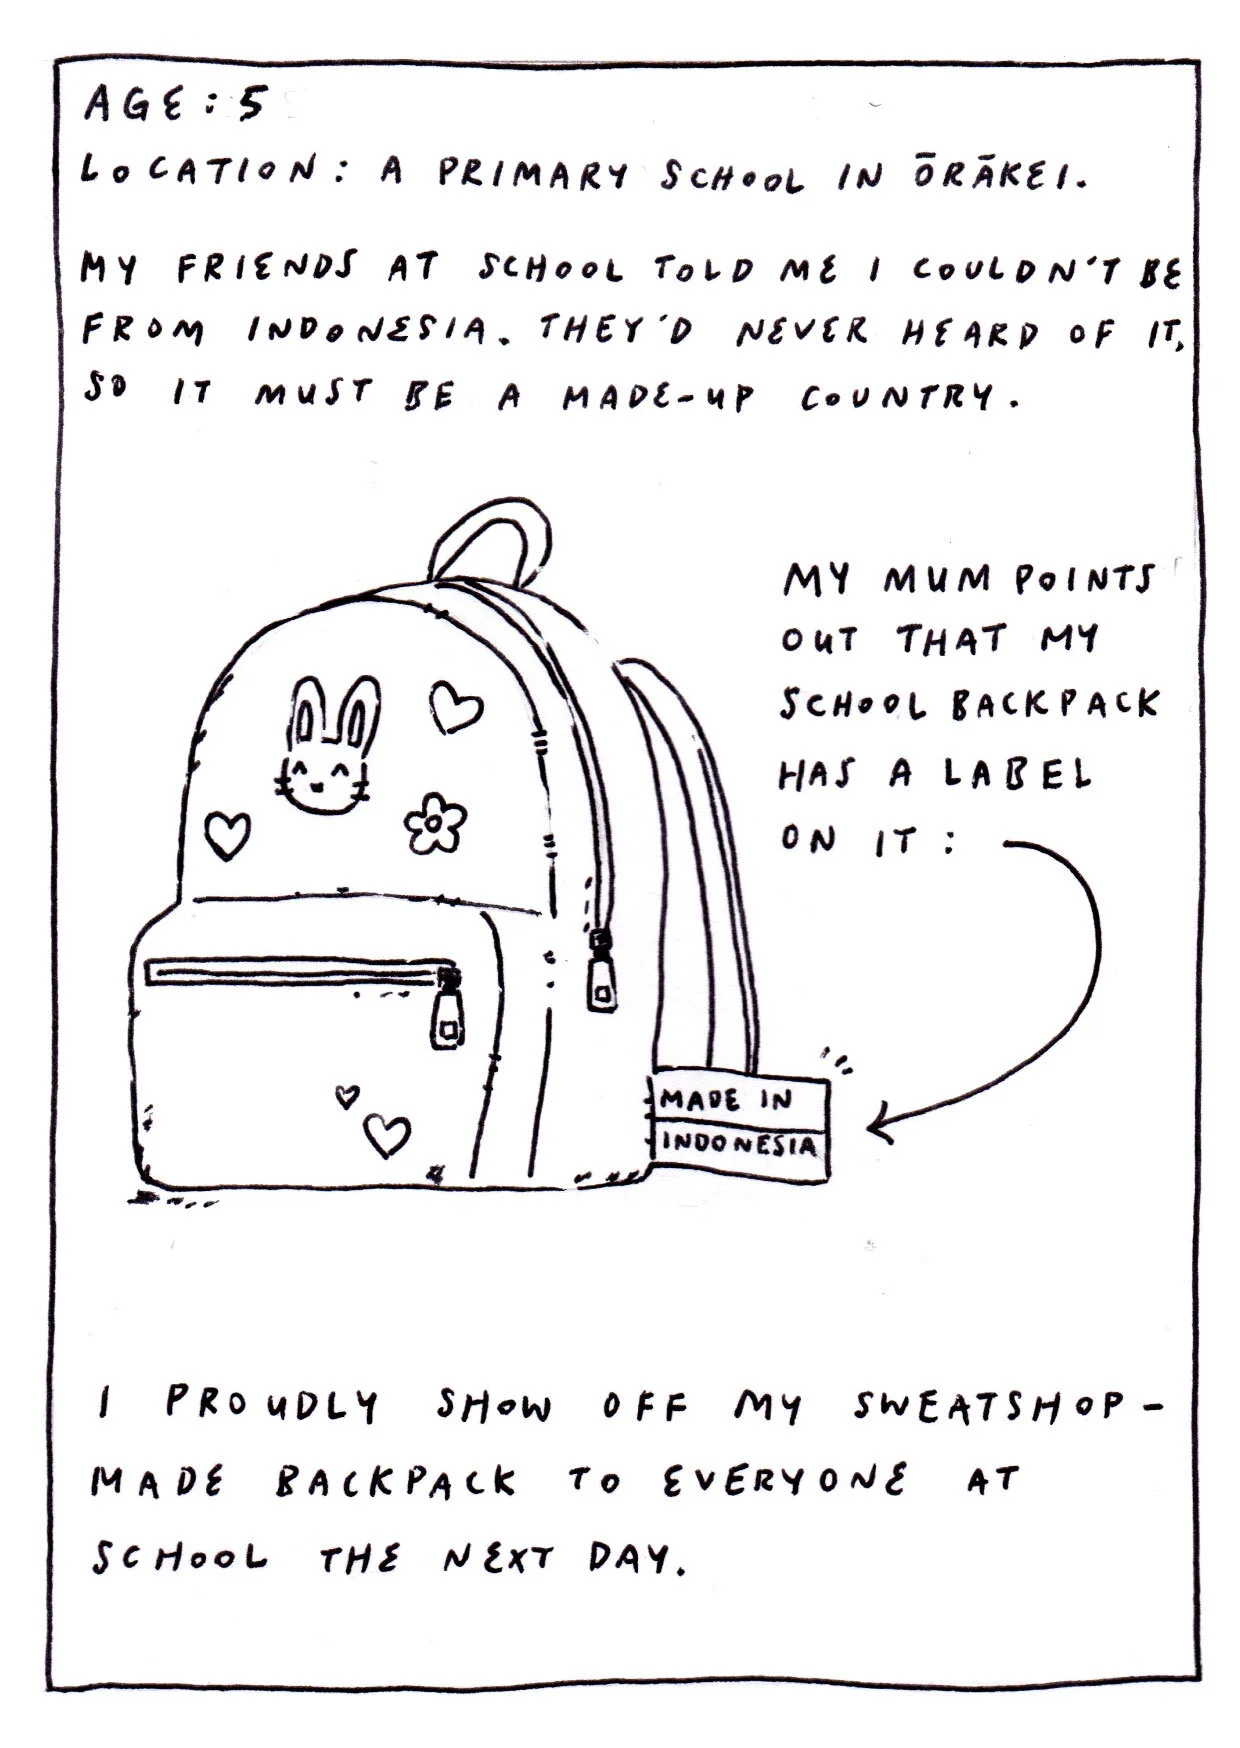 AGE: 5
LOCATION: A PRIMARY SCHOOL IN ŌRĀKEI.
MY FRIENDS AT SCHOOL TOLD ME I COULDN'T BE
FROM INDONESIA. THEY'D NEVER HEARD OF IT,
SO IT MUST BE A MADE-UP COUNTRY.
MY MUM POINTS
OUT THAT MY
SCHOOL BACKPACK
HAS A LABEL
ON IT:
MADE IN
INDONESIA
I PROUDLY SHOW OFF MY SWEATSHOP-
MADE BACKPACK TO EVERYONE AT
SCHOOL THE NEXT DAY.